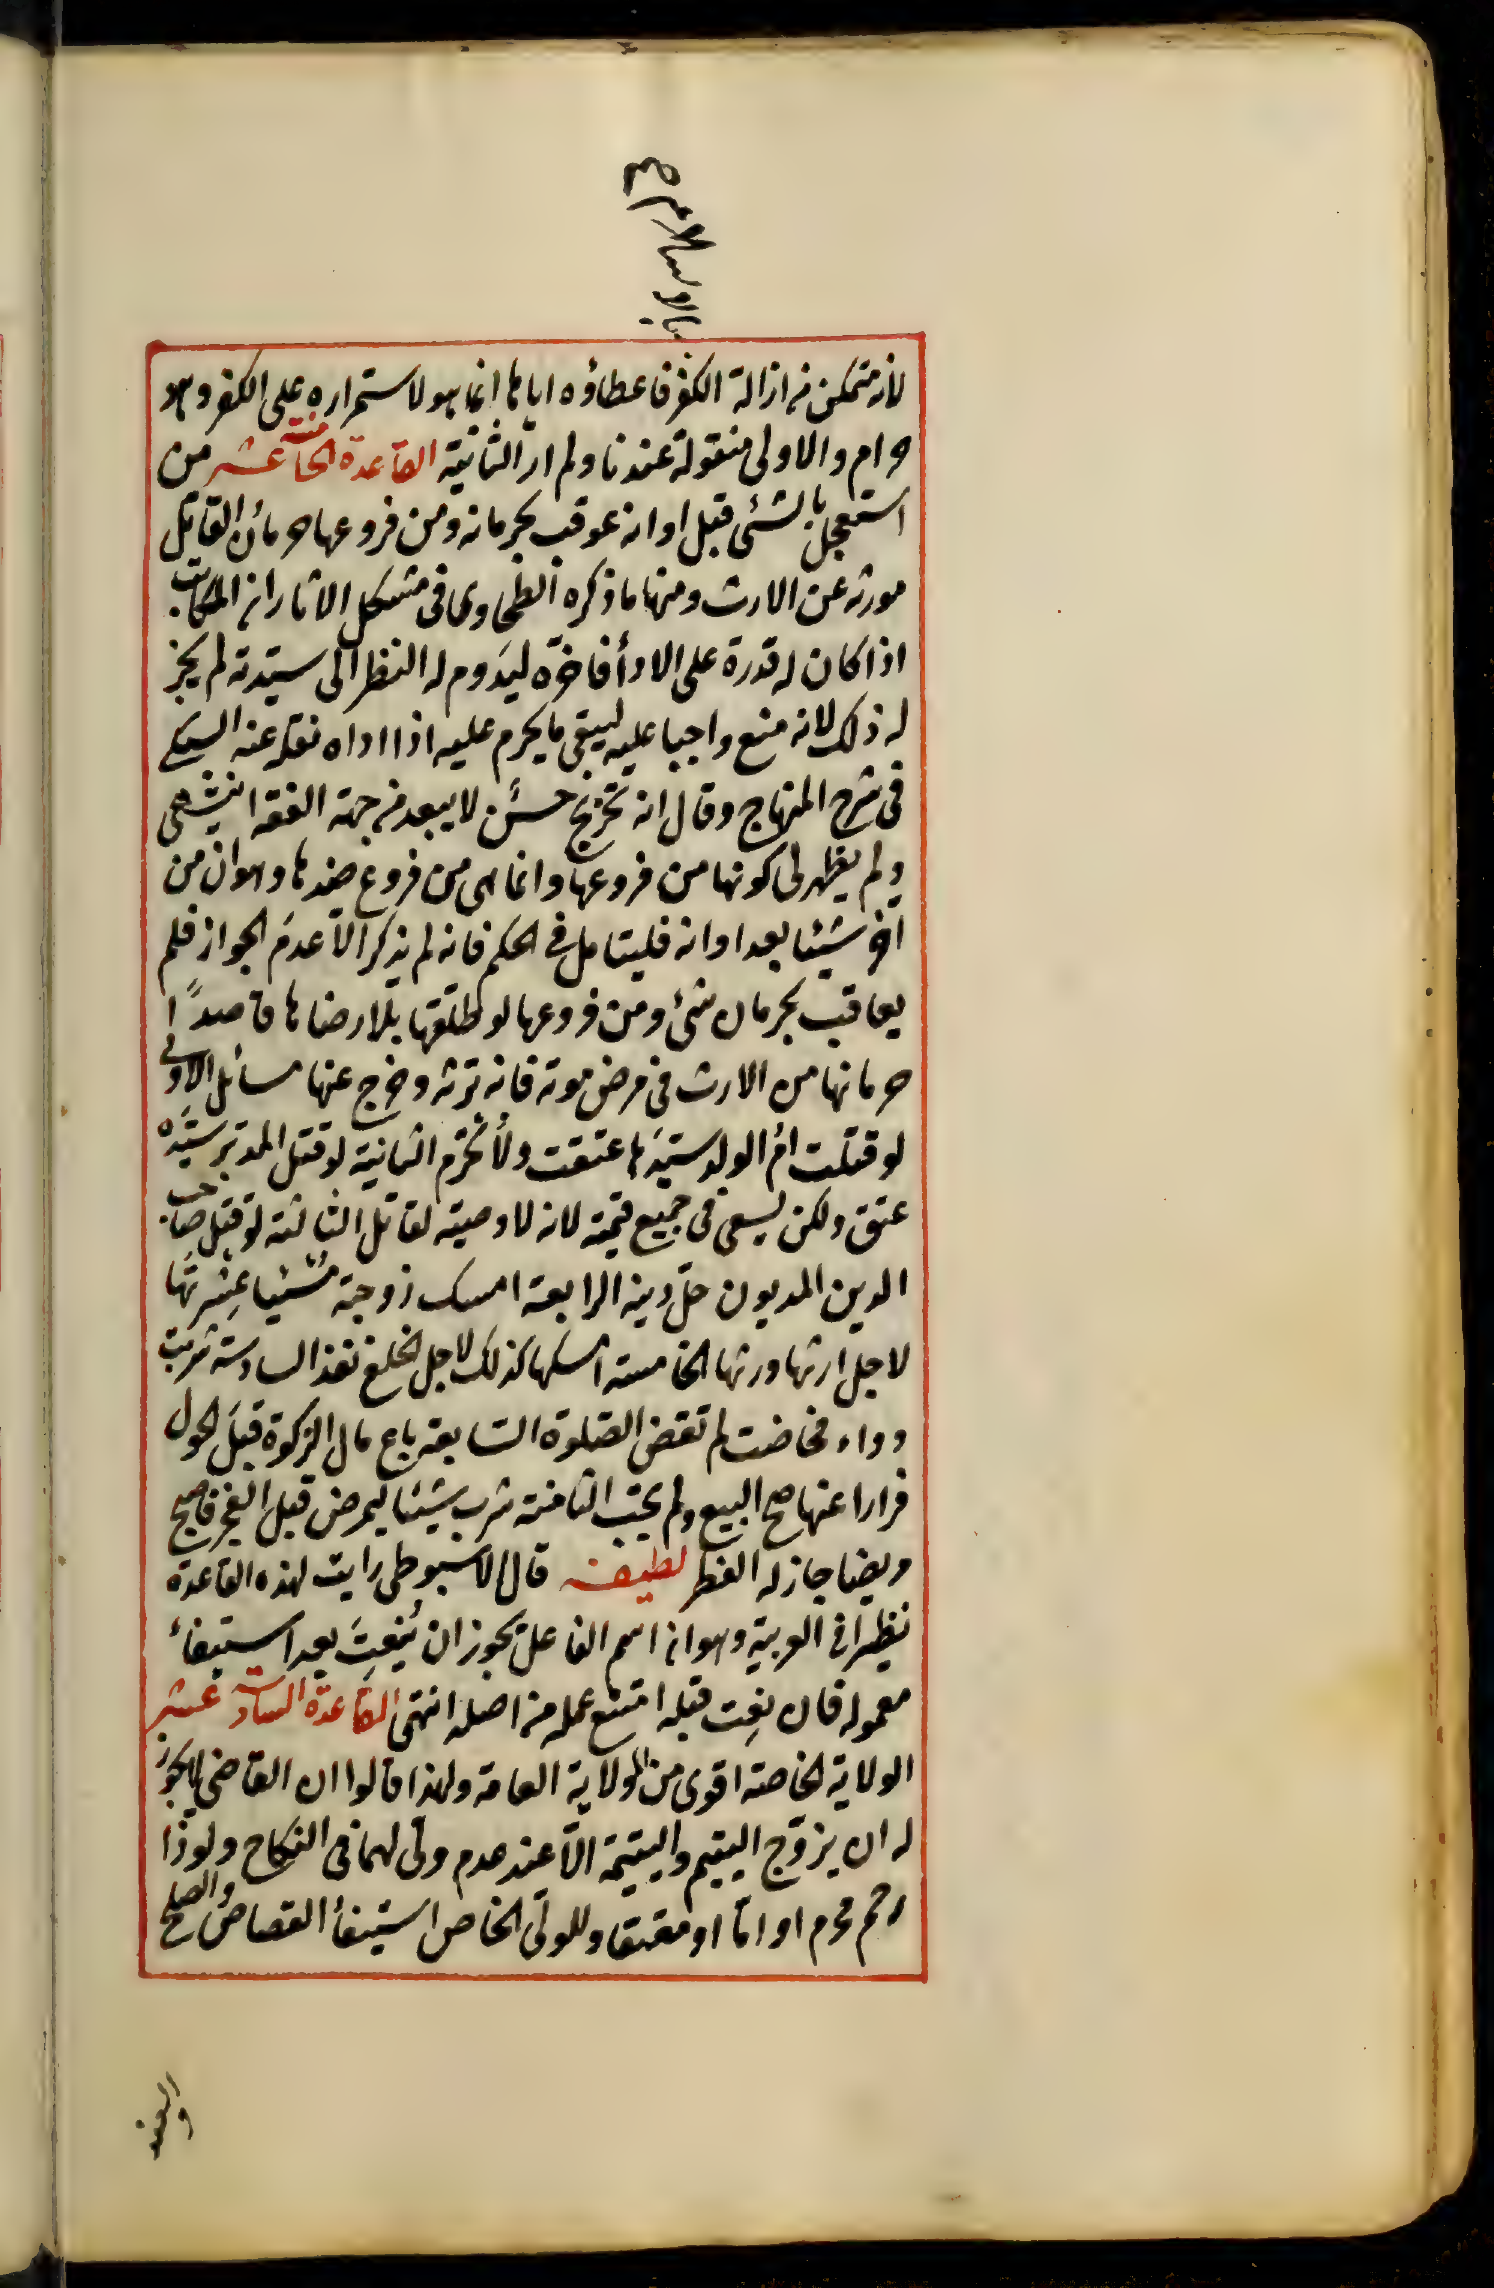 بالاسلام صح
لانه متمكن من ازالة الكفر فاعطاؤه اياها انما هو لاستمراره على الكفر وهو
حرام والاولى منقولة عندنا ولم ار الثانية القاعدة الخامسة عشر من
استعجل بالشئ قبل اوانه عوقب بحرمانه ومن فروعها حرمان القاتل
مورثه عن الارث ومنها ما ذكره الطحاوى فى مشكل الاثار ان المكاتب
اذا كان له قدرة على الاداء فاخره ليدوم له النظر الى سيدته لم يجز
له ذلك لانه منع واجبا عليه ليبقى ما يحرم عليه اذا اداه نقله عنه السبكى
فى شرح المنهاج وقال انه تخريج حسن لا يبعد من جهة الفقه انتهى
ولم يظهر لى كونها من فروعها وانما هى من فروع ضدها وهو ان من
اخر شيئا بعد اوانه فليتامل فى الحكم فانه لم يذكر الا عدم الجواز فلم
يعاقب بحرمان شئ ومن فروعها لو طلقها بلا رضاها قاصدًا
حرمانها من الارث فى مرض موته فانه ترثه وخرج عنها مسائل الاولى
لو قتلت ام الولد سيدها عتقت ولا تحرم الثانية لو قتل المدبر سيده
عتق ولكن يسعى فى جميع قيمته لانه لا وصية لقاتل الثالثة لو قتل صاحب
الدين المديون حل دينه الرابعة امسك زوجته مسيئا عشرتها
لاجل ارثها ورثها الخامسة امسكها كذلك لاجل الخلع نفذ السادسة شربت
دواء فحاضت لم تقض الصلوة السابعة باع مال الزكوة قبل الحول
فرارا عنها صح البيع ولم يجب الثامنة شرب شيئا ليمرض قبل الفجر فاصبح
مريضا جاز له الفطر لطيفة قال الاسيوطى رايت لهذه القاعدة
نظيرا فى العربية وهو ان اسم الفاعل يجوز ان يُنعت بعد استيفاء
معموله فان نعت قبله امتنع عمله من اصله انتهى القاعدة السادسة عشر
الولاية الخاصة اقوى من الولاية العامة ولهذا قالوا ان القاضى لا يجوز
له ان يزوج اليتيم واليتيمة الا عند عدم ولى لهما فى النكاح ولو ذا
رحم محرم او اما او معتقا وللولى الخاص استيفاء القصاص والصلح
والعفو